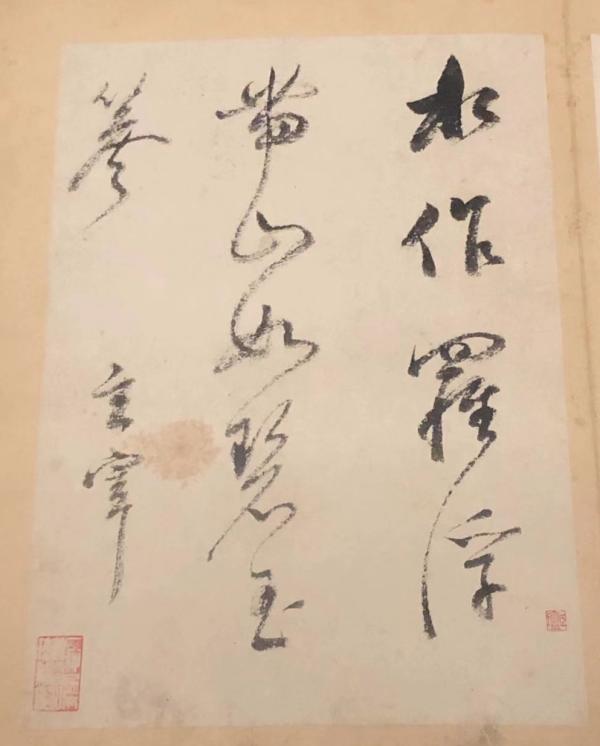 水作羅浮
帶山如碧玉
篸 玄宰